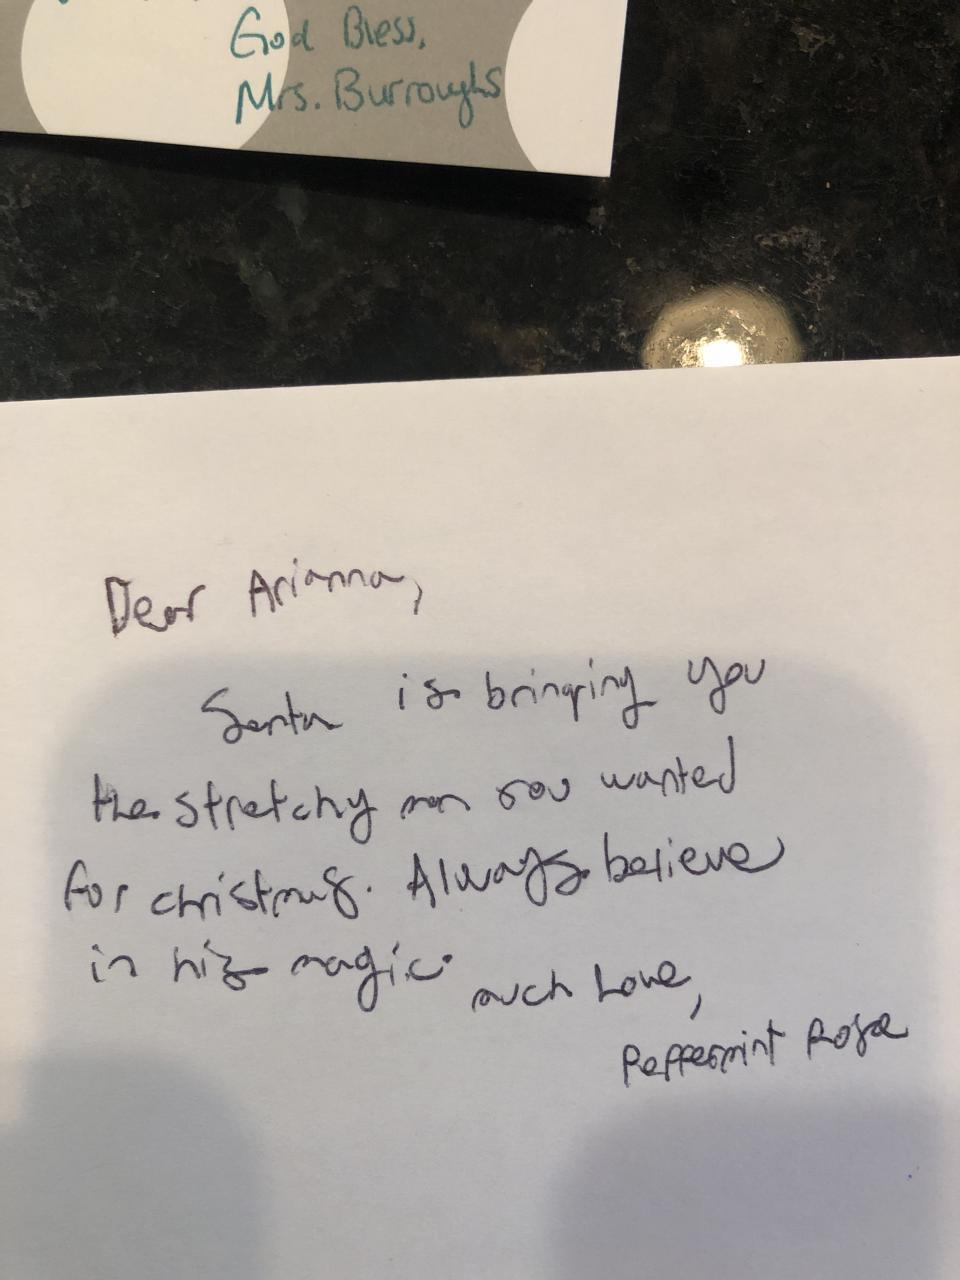 God Bless,
Mrs. Burroughs
Dear Arianna,
Santa is bringing you
the stretchy man you wanted
for christmas. Always believe
in his magic.
much Love,
Peppermint Rose